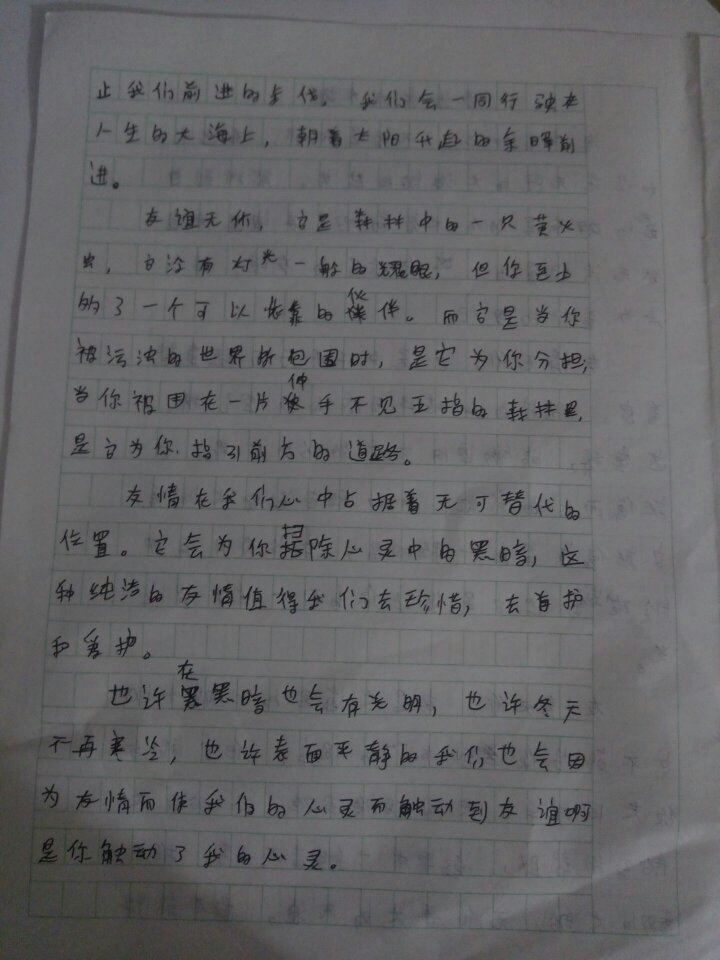 止我们前进的步伐。我们会一同行驶在
人生的大海上，朝着太阳升起的余晖前
进。
友谊无价，它是森林中的一只萤火
虫，它没有灯光一般的耀眼，但你至少
的了一个可以依靠的伙伴。而它是当你
被污浊的世界所包围时，是它为你分担，
当你被困在一片伸手不见五指的森林里，
是它为你指引前方的道路。
友情在我们心中占据着无可替代的
位置。它会为你扫除心灵中的黑暗，这
种纯洁的友情值得我们去珍惜，去
和爱护。
也许在黑暗也会有光明，也许冬天
不再寒冷，也许表面平静的我们也会因
为友情而使我们的心灵而触动到友谊啊
是你触动了我的心灵。